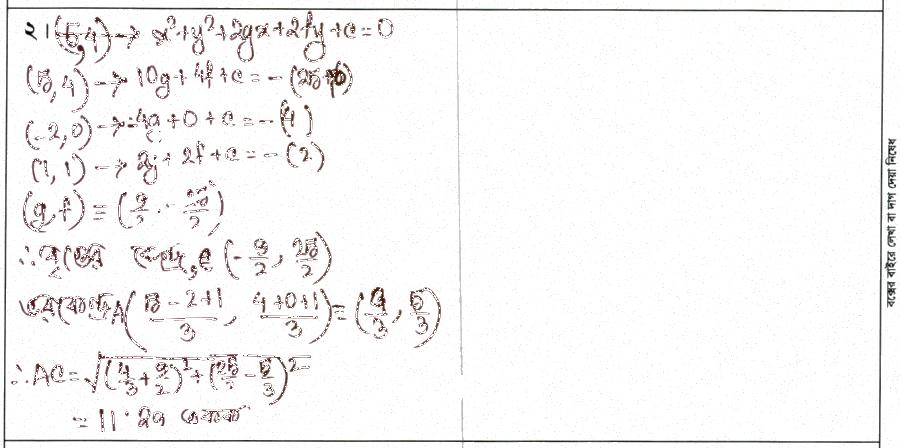 ২। (5,4) → x²+y²+2gx+2fy+c=0
(5,4) → 10g+4f+c = -(25+16)
(-2,0) → -4g+0+c = -(4)
(1,1) → 2g+2f+c = -(2)
(g,f) ≡ (9/2, -25/2)
∴ বৃত্তের কেন্দ্র, C (-9/2, 25/2)
ভরকেন্দ্র A((5-2+1)/3, (4+0+1)/3) ≡ (4/3, 5/3)
∴ AC = √((4/3+9/2)²+(25/2-5/3)²)
= 11.29 একক
বক্সের বাইরে লেখা বা দাগ দেয়া নিষেধ